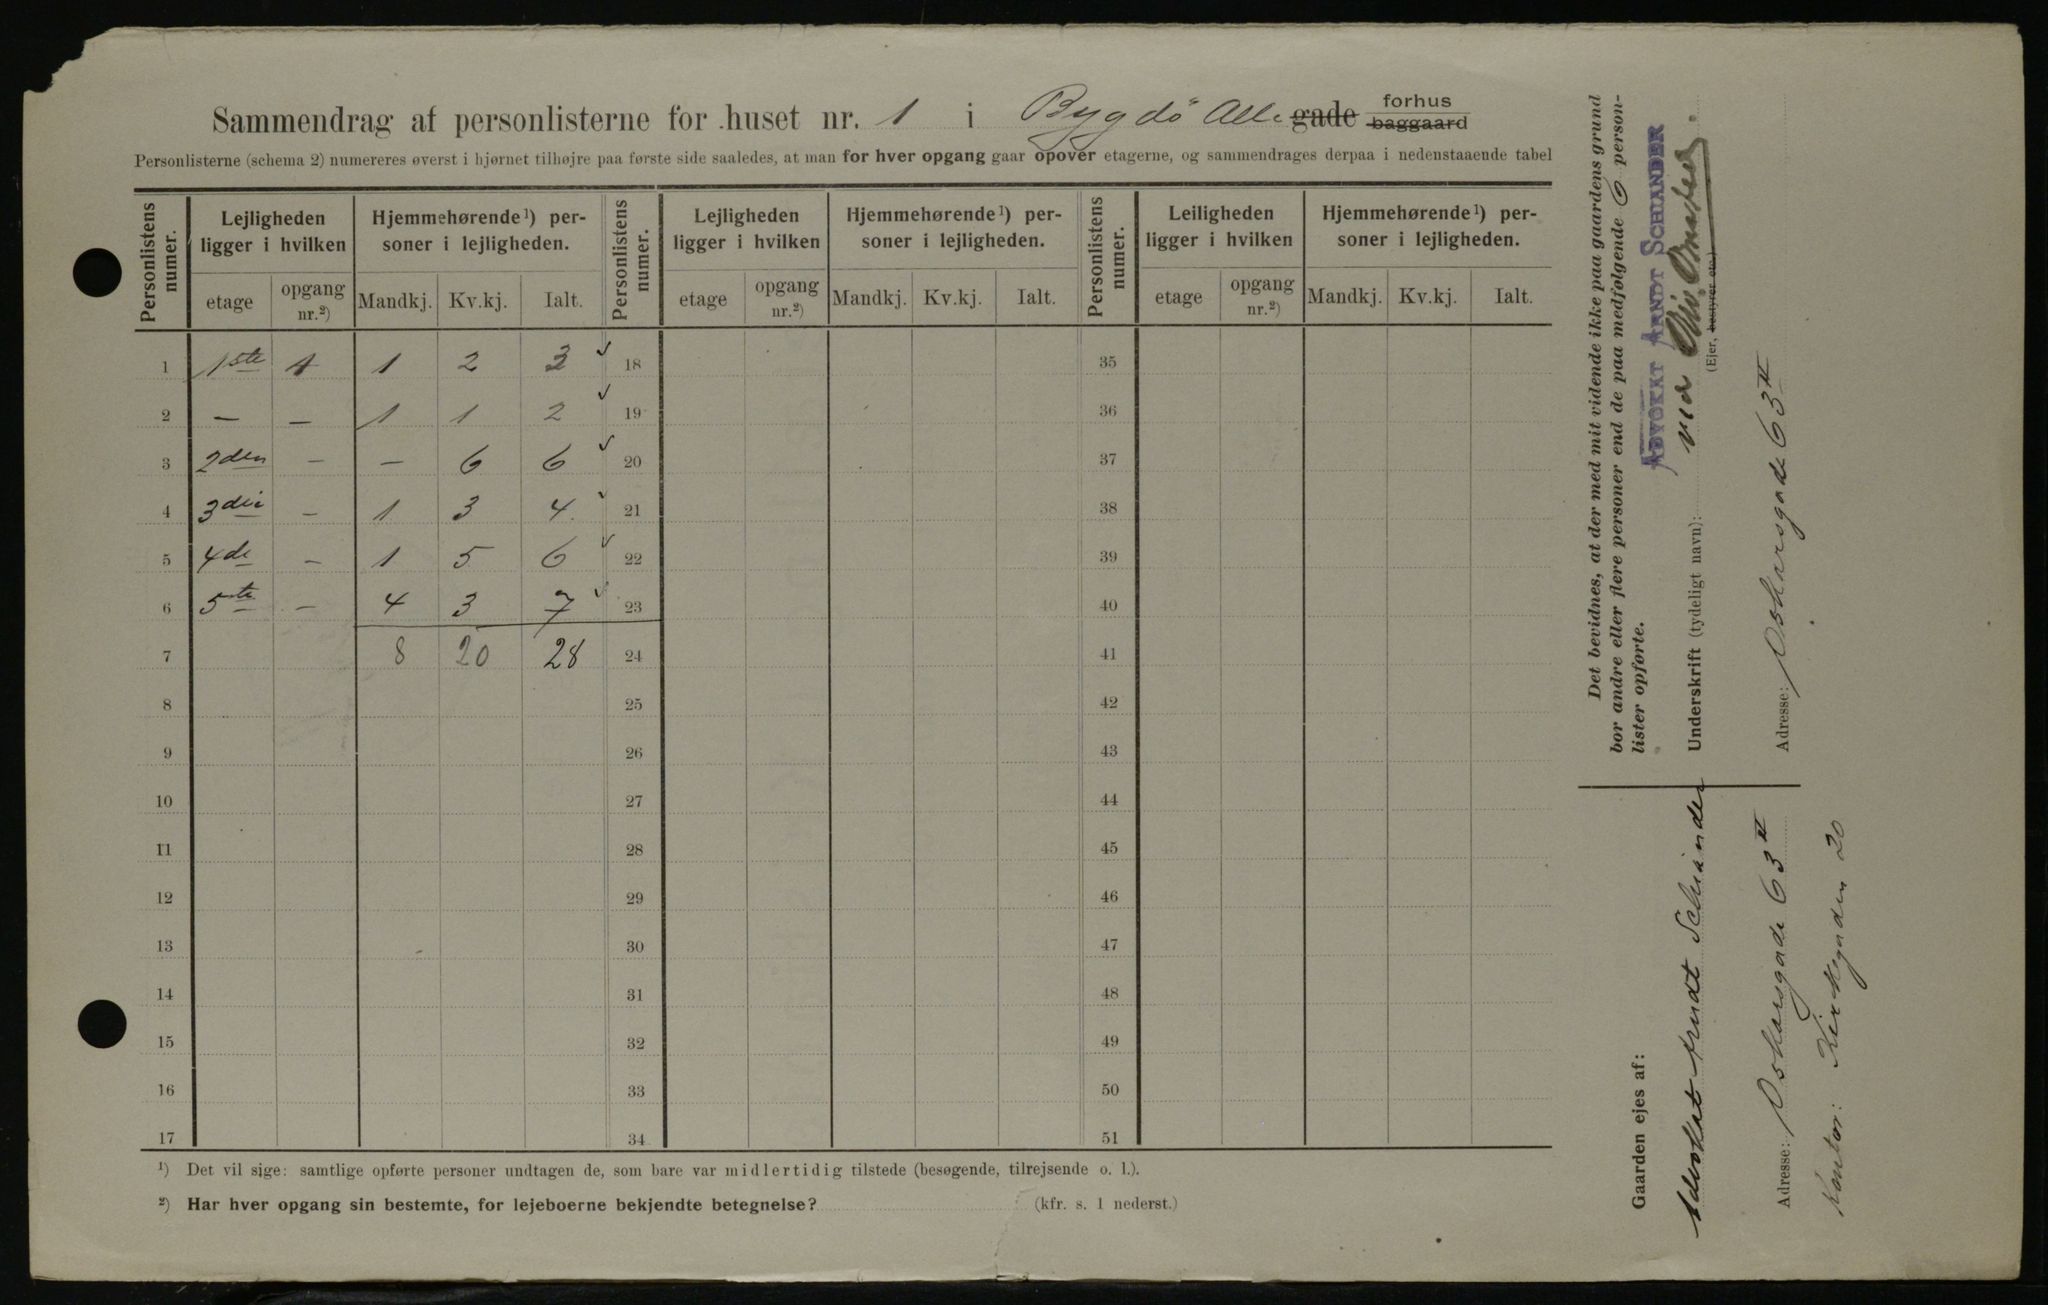 Sammendrag af personlisterne for huset nr. 1 i Bygdö Alle gade forhus baggaard
Personlisterne (schema 2) numereres øverst i hjørnet tilhøjre paa første side saaledes, at man for hver opgang gaar opover etagerne, og sammendrages derpaa i nedenstaaende tabel
Personlistens numer.
Lejligheden ligger i hvilken
Hjemmehørende¹) personer i lejligheden.
Personlistens numer.
Lejligheden ligger i hvilken
Hjemmehørende¹) personer i lejligheden.
Personlistens numer.
Leiligheden ligger i hvilken
Hjemmehørende¹) personer i lejligheden.
etage opgang nr.²) Mandkj. Kv.kj. Ialt. etage opgang nr.²) Mandkj. Kv.kj. Ialt. etage opgang nr.²) Mandkj. Kv.kj. Ialt.
1 1ste 1 1 2 3 18 35
2 — — 1 1 2 19 36
3 2den — — 6 6 20 37
4 3die — 1 3 4 21 38
5 4de — 1 5 6 22 39
6 5te — 4 3 7 23 40
7 8 20 28 24 41
8 25 42
9 26 43
10 27 44
11 28 45
12 29 46
13 30 47
14 31 48
15 32 49
16 33 50
17 34 51
¹) Det vil sige: samtlige opførte personer undtagen de, som bare var midlertidig tilstede (besøgende, tilrejsende o. l.).
²) Har hver opgang sin bestemte, for lejeboerne bekjendte betegnelse? (kfr. s. 1 nederst.)
Det bevidnes, at der med mit vidende ikke paa gaardens grund
bor andre eller flere personer end de paa medfølgende 6 person-
lister opførte.
ADVOKAT ARNDT SCHIANDER
Underskrift (tydeligt navn):
(Ejer, bestyrer etc.)
Adresse: Oskarsgade 63 II
Gaarden ejes af:
Advokat Arndt Schiander
Adresse: Oskarsgade 63 II
Kontor: Kirkegaden 20